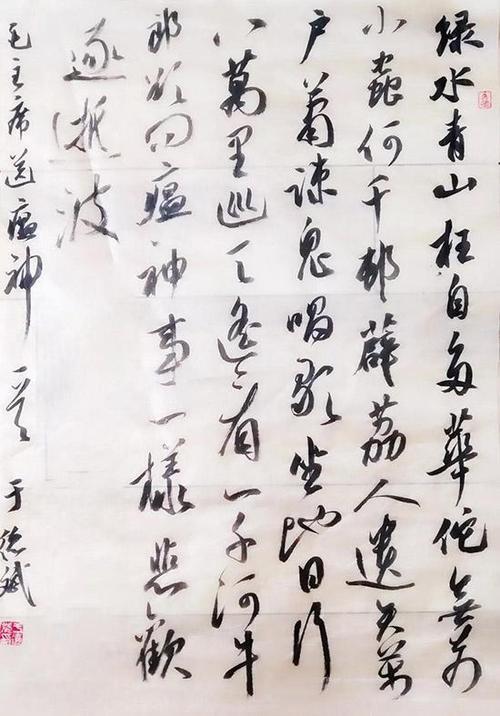 绿水青山枉自多華佗無奈
小蟲何千邨薜荔人遺矢萬
户蕭疎鬼唱歌坐地日行
八萬里巡天遙看一千河牛
郎欲问瘟神事一樣悲歡
逐逝波
毛主席送瘟神一首 于德斌